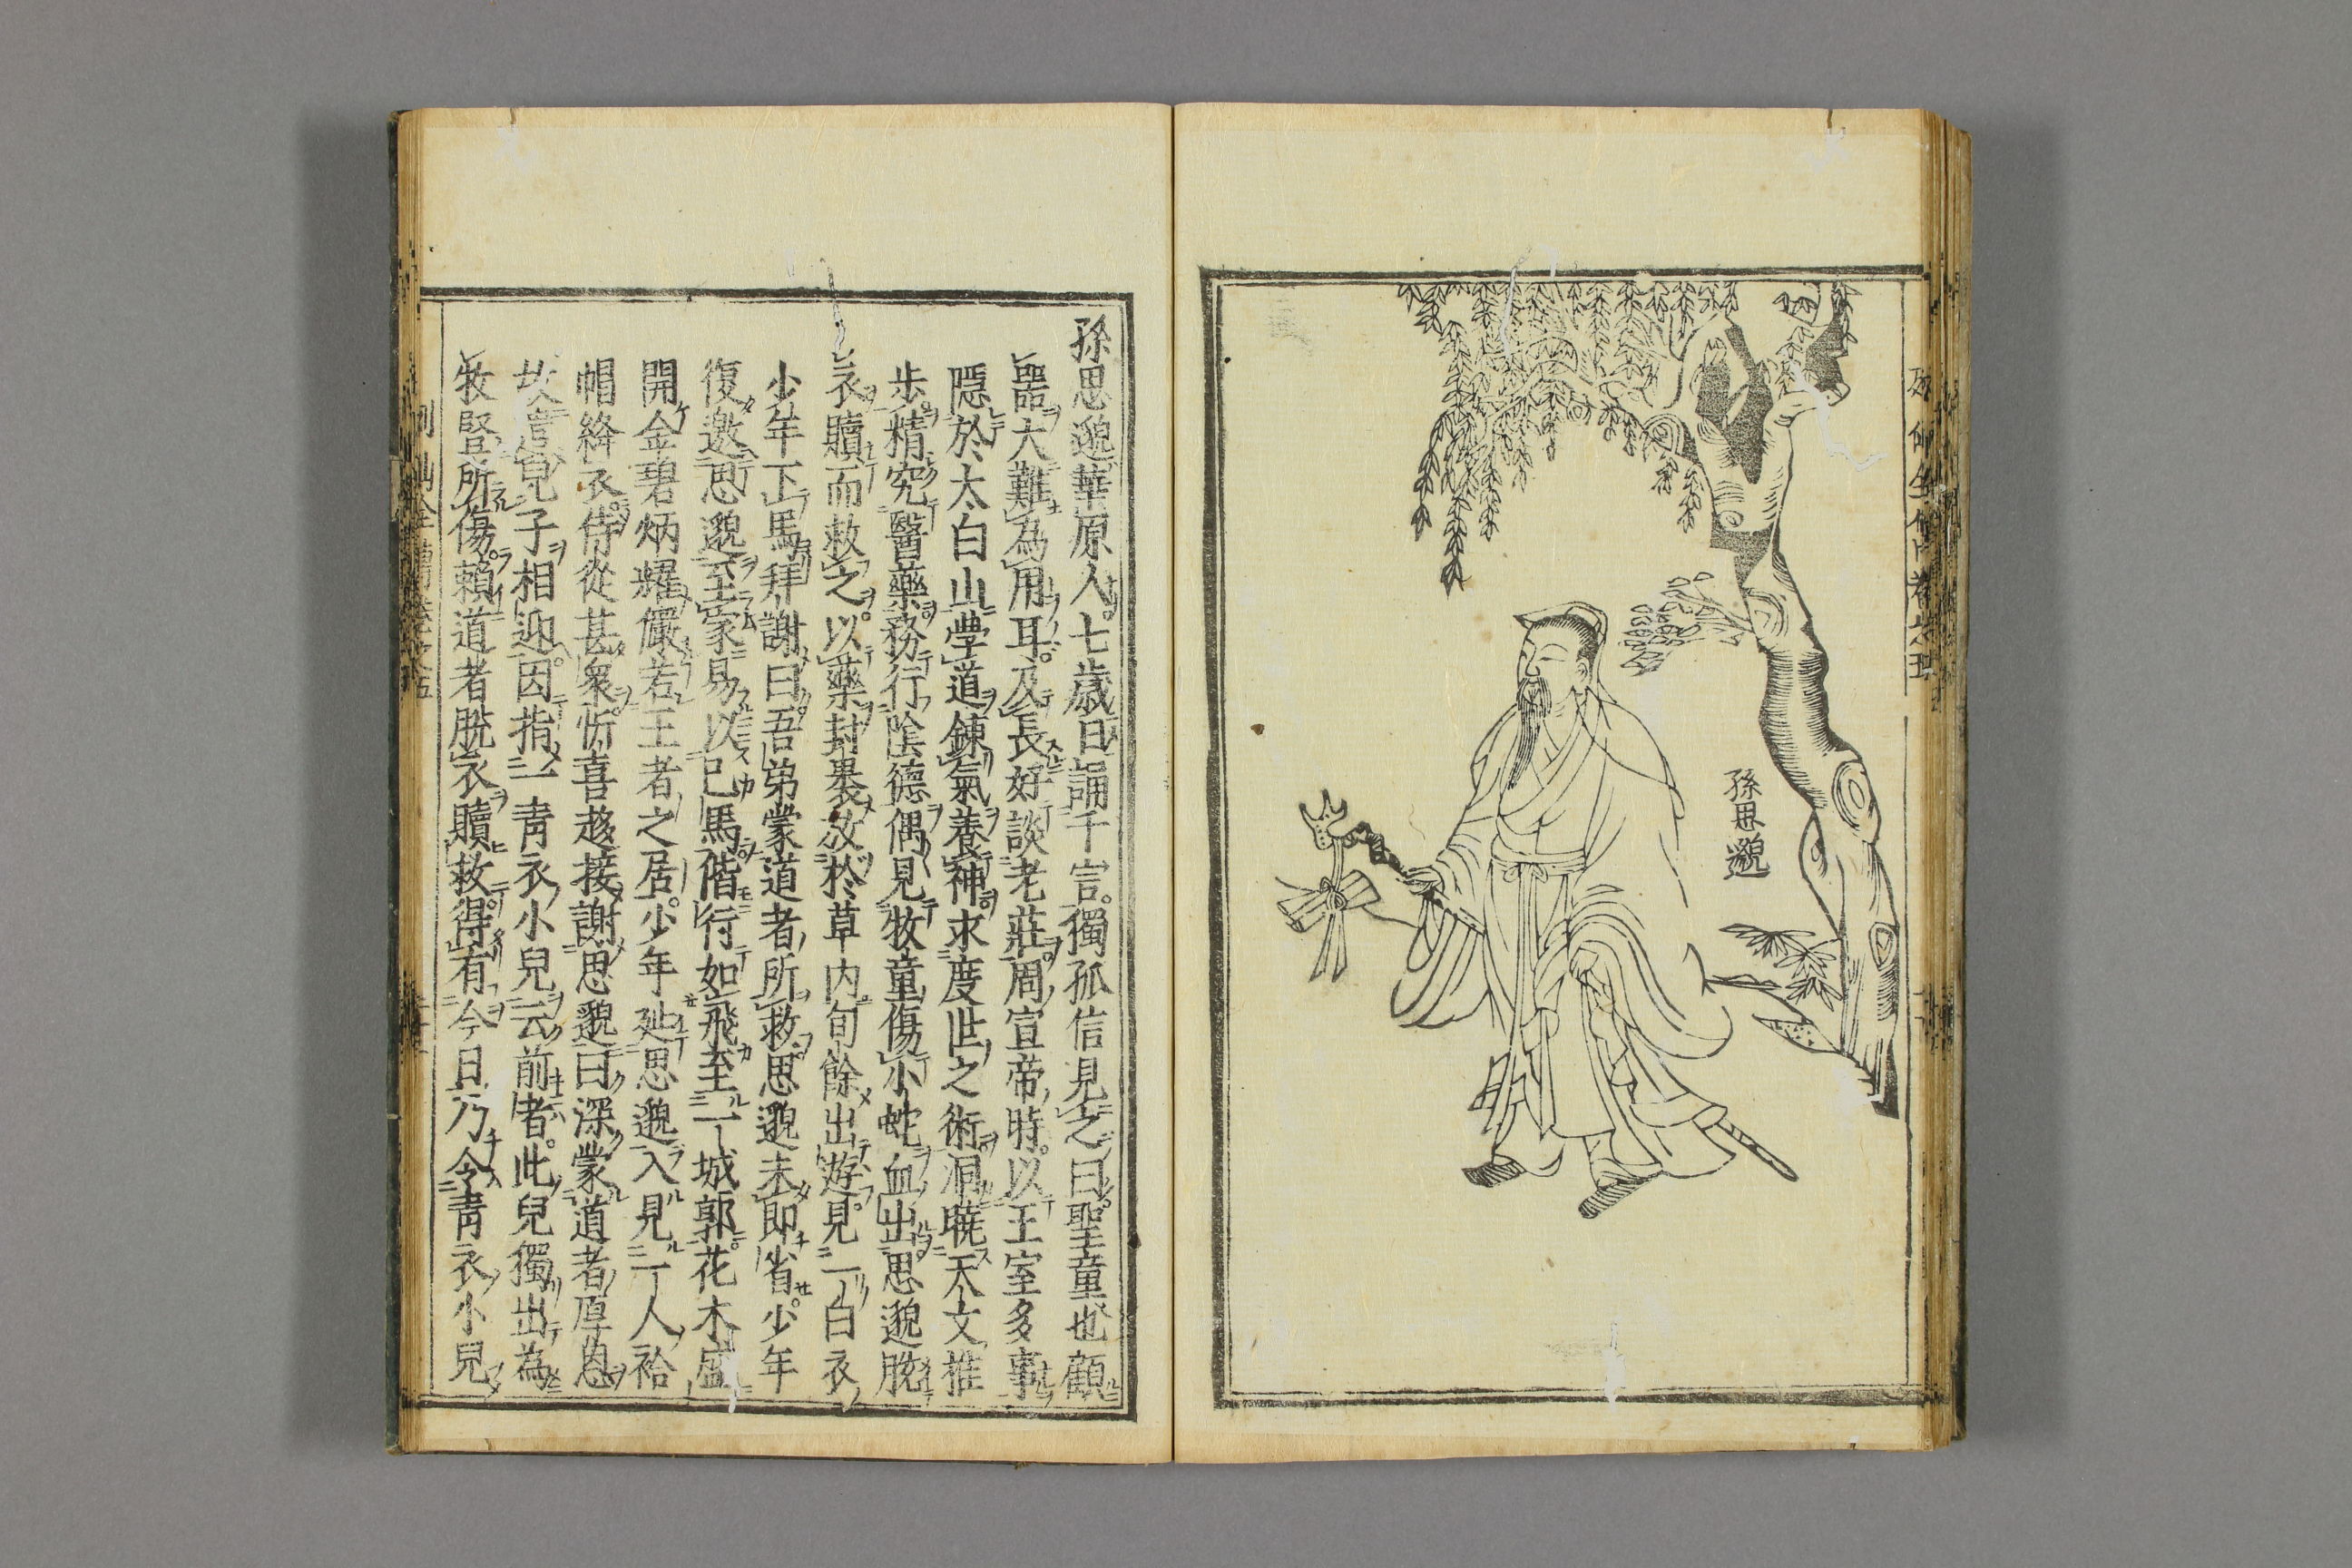 孫思邈
孫思邈華原人七歳日誦千言獨孤信見之曰聖童也顧
噐大難為用耳及長好談老莊周宣帝時以王室多事
隠於太白山學道錬氣養神求度世之術洞暁天文推
歩精究醫藥務行陰德偶見牧童傷小蛇血出思邈脱
衣贖而救之以藥封裹放於草内旬餘出遊見一白衣
少年下馬拜謝曰吾弟蒙道者所救思邈未即省少年
復邀思邈至家易以已馬偕行如飛至一城郭花木盛
開金碧炳耀儼若王者之居少年延思邈入見一人袷
帽絳衣侍從甚衆忻喜趍接謝思邈曰深蒙道者厚恩
故遣兒子相迎因指一青衣小兒云前者此兒獨出為
牧竪所傷頼道者脱衣贖救得有今日乃令青衣小兒